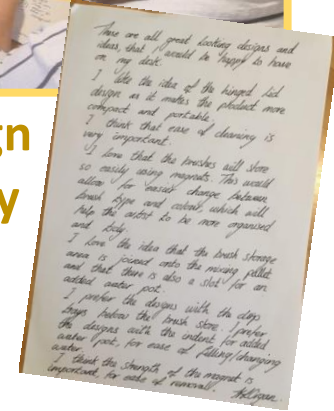 These are all great looking designs and
ideas, that I would be happy to have
on my desk.
I like the idea of the hinged lid
design as it makes the product more
compact and portable.
I think that ease of cleaning is
very important.
I love that the brushes will store
so easily using magnets. This would
allow for easier change between
brush type and colour, which will
help the artist to be more organised
and tidy.
I love the idea that the brush storage
area is joined onto the mixing pallet
and that there is also a slot for an
added water pot.
I prefer the designs with the drip
trays below the brush store. I prefer
the designs with the indent for added
water pot, for ease of filling/changing
water.
I think the strength of the magnet is
important, for ease of removal.
gn
y